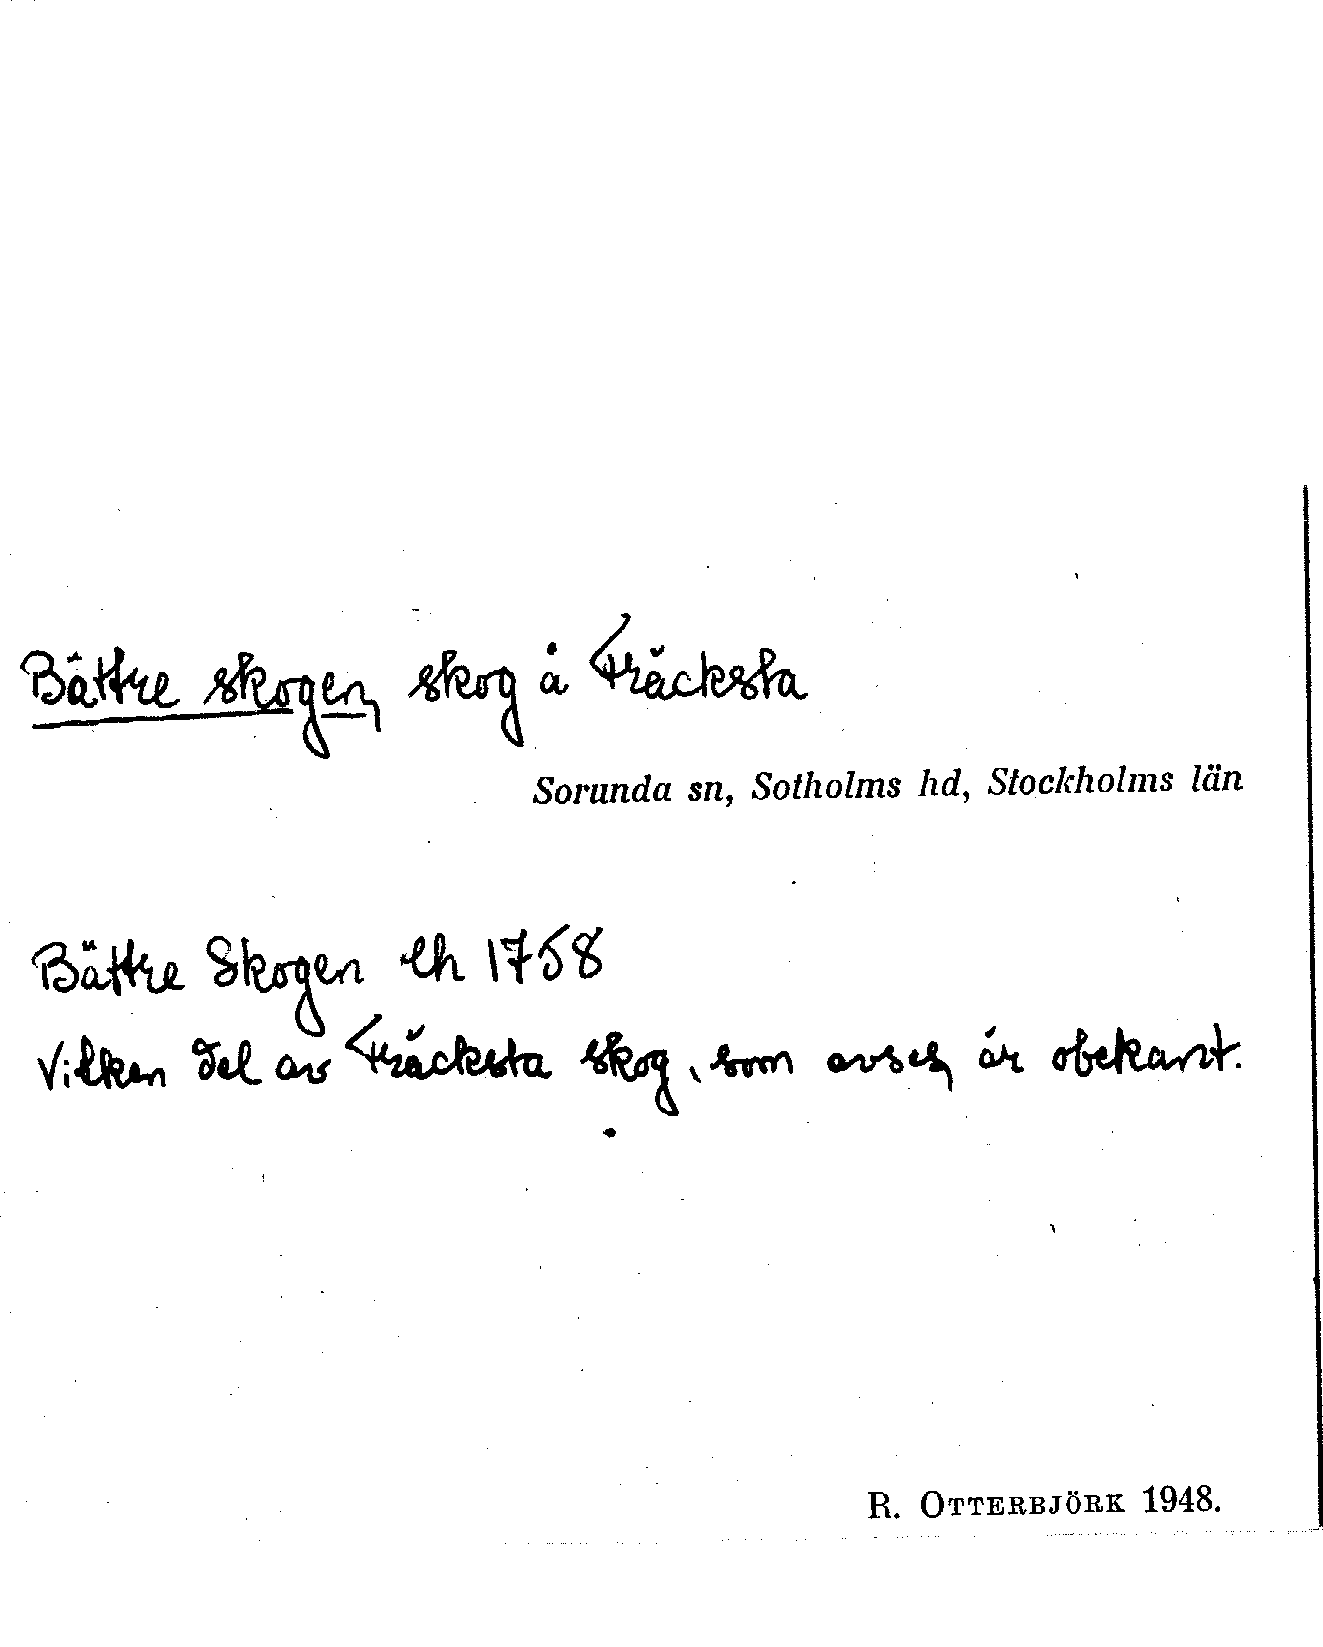 Bättre skogen, skog å Fräcksta
Sorunda sn, Sotholms hd, Stockholms län
Bättre Skogen lh 1758
Vilken del av Fräcksta skog, som avses, är obekant.
R. OTTERBJÖRK 1948.